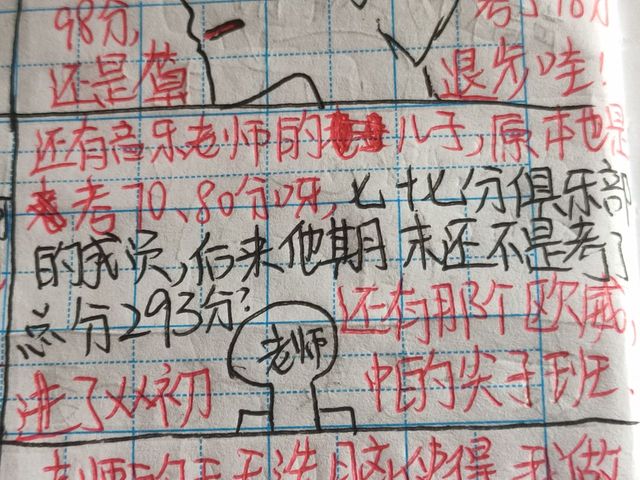 98分,
还是蓝
考了78分
退步哇!
还有音乐老师的儿子,原本也是
考70、80分呀,七十七分俱乐部
的成员,后来他期末还不是考了
总分293分?
老师
还有那个欧威,
进了XX初
中的尖子班、